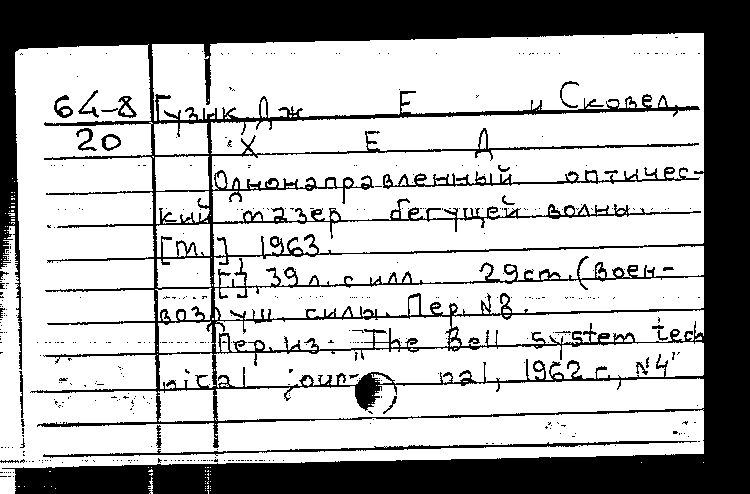 64-8 Гузик, Дж Е и Сковел,
20 Х Е Д
Однонаправленный оптичес-
кий мазер бегущей волны.
[М.], 1963.
[1], 39 л. с илл. 29 см. (Воен-
возд уш. силы. Пер. N8.
Пер. из: "The Bell system tech
nical jour- nal, 1962 г., N4"